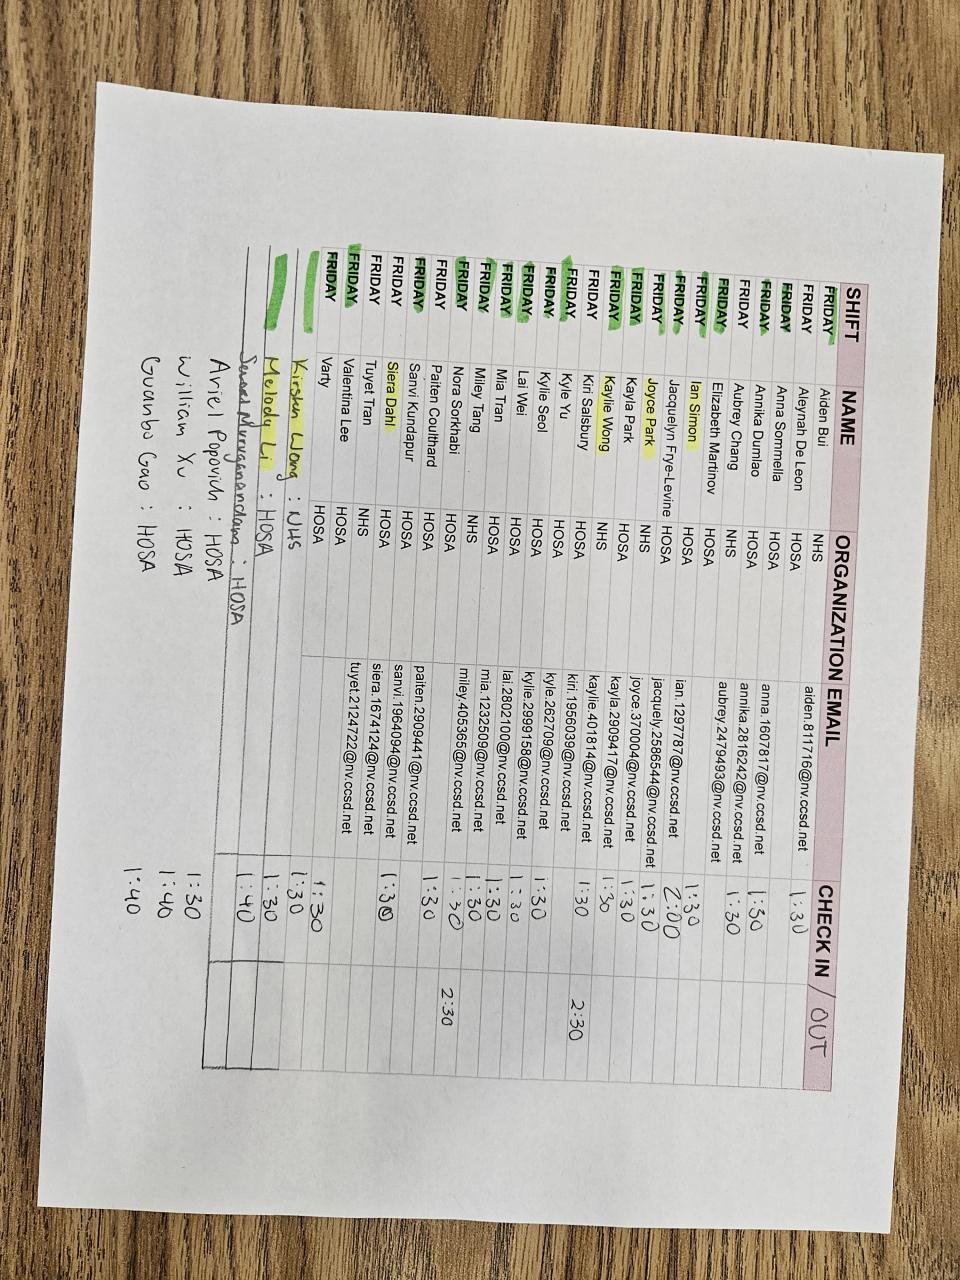 SHIFT NAME ORGANIZATION EMAIL CHECK IN / OUT
FRIDAY Aiden Bui NHS aiden.811716@nv.ccsd.net 1:30
FRIDAY Aleynah De Leon HOSA
FRIDAY Anna Sommella HOSA anna.1607817@nv.ccsd.net 1:30
FRIDAY Annika Dumlao HOSA annika.2816242@nv.ccsd.net 1:30
FRIDAY Aubrey Chang NHS aubrey.2479493@nv.ccsd.net
FRIDAY Elizabeth Martinov HOSA 1:30
FRIDAY Ian Simon HOSA ian.1297787@nv.ccsd.net 2:00
FRIDAY Jacquelyn Frye-Levine HOSA jacquely.2586544@nv.ccsd.net 1:30
FRIDAY Joyce Park NHS joyce.370004@nv.ccsd.net 1:30
FRIDAY Kayla Park HOSA kayla.2909417@nv.ccsd.net 1:30
FRIDAY Kaylie Wong NHS kaylie.401814@nv.ccsd.net 1:30 2:30
FRIDAY Kiri Salsbury HOSA kiri.1956039@nv.ccsd.net
FRIDAY Kyle Yu HOSA kyle.262709@nv.ccsd.net 1:30
FRIDAY Kylie Seol HOSA kylie.2999158@nv.ccsd.net 1:30
FRIDAY Lai Wei HOSA lai.2802100@nv.ccsd.net 1:30
FRIDAY Mia Tran HOSA mia.1232509@nv.ccsd.net 1:30
FRIDAY Miley Tang NHS miley.405365@nv.ccsd.net 1:30 2:30
FRIDAY Nora Sorkhabi HOSA 1:30
FRIDAY Paiten Coulthard HOSA paiten.2909441@nv.ccsd.net
FRIDAY Sanvi Kundapur HOSA sanvi.1964094@nv.ccsd.net 1:30
FRIDAY Siera Dahl HOSA siera.1674124@nv.ccsd.net
FRIDAY Tuyet Tran NHS tuyet.2124722@nv.ccsd.net
FRIDAY Valentina Lee HOSA 1:30
FRIDAY Varty HOSA 1:30
Kirsten Wong : NHS 1:30
Melody Li : HOSA 1:40
Muruganandam : HOSA
Ariel Popovich : HOSA 1:30
William Xu : HOSA 1:40
Guanbo Gao : HOSA 1:40